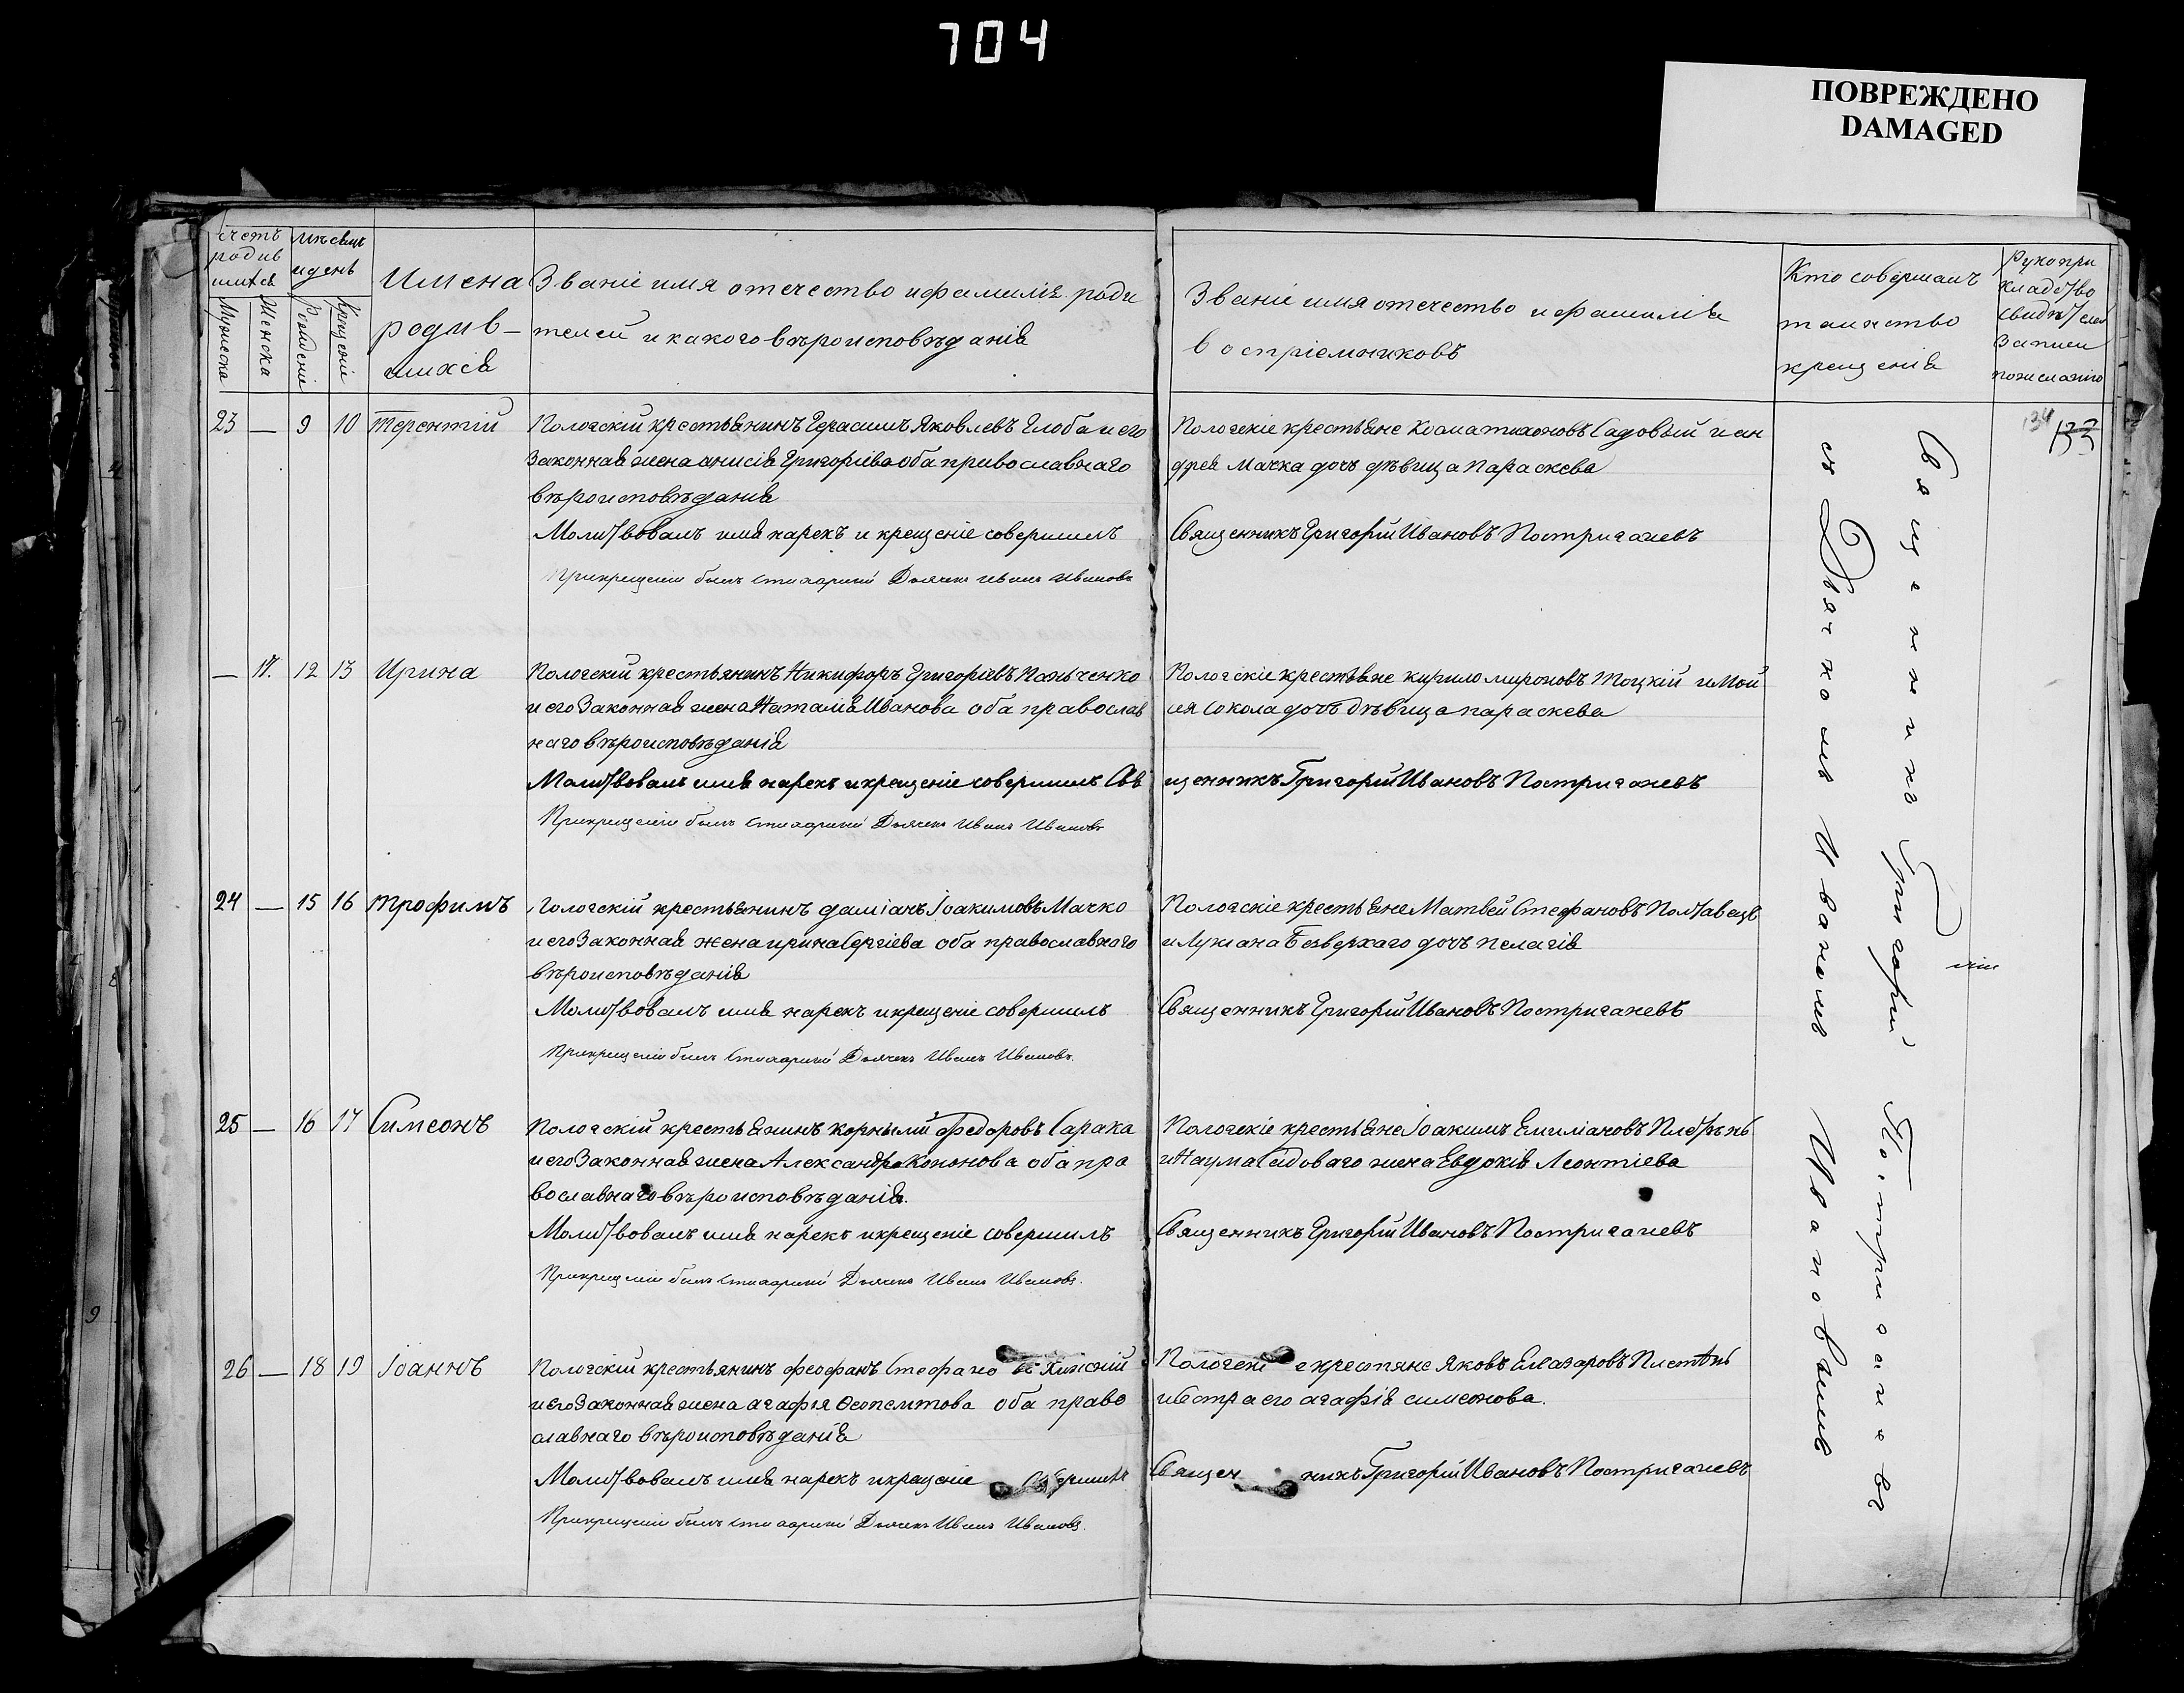 704
ПОВРЕЖДЕНО
DAMAGED
счетъ родив шихся
Мужеска
Женска
мѣсяцъ и день
Рожденіе
Крещеніе
Имена
родив-
шихся
Званіе имя отечество и фамилія роди
телей и какого вѣроисповѣданія
Званіе имя отечество и фамилія
воспріемниковъ
Кто совершалъ
таинство
крещенія
Рукопри
кладство
свидѣт
записи
по желанію
23 — 9 10 Терентій
Пологскій крестьянинъ Герасимъ Яковлевъ Глоба и его
законная жена анисія Григоріева оба православнаго
вѣроисповѣданія
Молитвовалъ имя нарекъ и крещеніе совершилъ
При крещеніи былъ Дьячекъ Иванъ Ивановъ
Пологскіе крестьяне Косма тихоновъ Садовый и ан
дрея Мачка дочь дѣвица параскева
Священникъ Григорій Ивановъ Постригачевъ
134
133
— 17. 12 13 Ирина
Пологскій крестьянинъ Никифоръ Григоріевъ Панъченко
и его законная жена Наталія Иванова оба православ
наго вѣроисповѣданія
Молитвовалъ имя нарекъ и крещеніе совершилъ Свя
При крещеніи былъ Дьячекъ Иванъ Ивановъ
Пологскіе крестьяне кирило мироновъ Тоцкій и Мои
сея Сокола дочь дѣвица параскева
щенникъ Григорій Ивановъ Постригачевъ
24 — 15 16 трофимъ
Пологскій крестьянинъ даміанъ Іоакимовъ Мачко
и его законная жена ирина Сергіева оба православнаго
вѣроисповѣданія
Молитвовалъ имя нарекъ и крещеніе совершилъ
При крещеніи былъ Дьячекъ Иванъ Ивановъ.
Пологскіе крестьяне Матвей Стефановъ Полтавецъ
и Лукіана Безверхаго дочь пелагія
Священникъ Григорій Ивановъ Постригачевъ
25 — 16 17 Симеонъ
Пологскій крестьянинъ корнылій Федоровъ Сарака
и его законная жена Александра Кононова оба пра
вославнаго вѣроисповѣданія.
Молитвовалъ имя нарекъ и крещеніе совершилъ
При крещеніи былъ Дьячекъ Иванъ Ивановъ.
Пологскіе крестьяне Іоакимъ Емиліановъ
и Наума Садоваго жена Евдокія Леонтіева
Священникъ Григорій Ивановъ Постригачевъ
26 — 18 19 Іоаннъ
Пологскій крестьянинъ феофанъ Стефано въ
и его законная жена агафія оба право
славнаго вѣроисповѣданія
Молитвовалъ имя нарекъ и крещеніе совершилъ
При крещеніи былъ Дьячекъ Иванъ Ивановъ.
Пологскі е крестяне Яковъ Елеазаровъ
и сестра его агафія симеонова.
Священ никъ Григорій Ивановъ Постригачевъ
Священникъ Григорій Постригачевъ
съ Дьячкомъ Иваномъ Ивановымъ